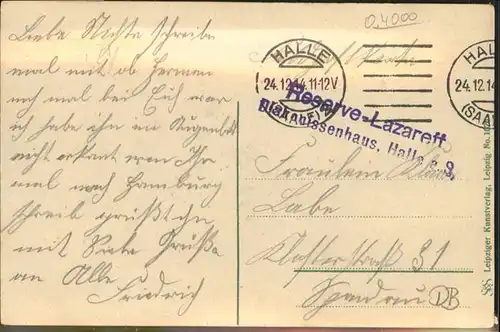 Liebe Nichte schreibe
mal mit ob Herman
noch mal bei Euch war
ich habe ihn im Augenbl
nicht erkant wen Ihr
mal nach Hamburg
schreib grüßt ihn
mit Liebe Grüße
an Alle
Friedrich
0,4000
HALLE
24.12.14.11-12V
(SAALE)
HALLE
24.12.14
(SAALE)
Reserve-Lazarett
Diakonissenhaus, Halle a. S.
Fräulein
Labe
Klosterstraß 31
Spandau
DB
Leipziger Kunstverlag, Leipzig No.